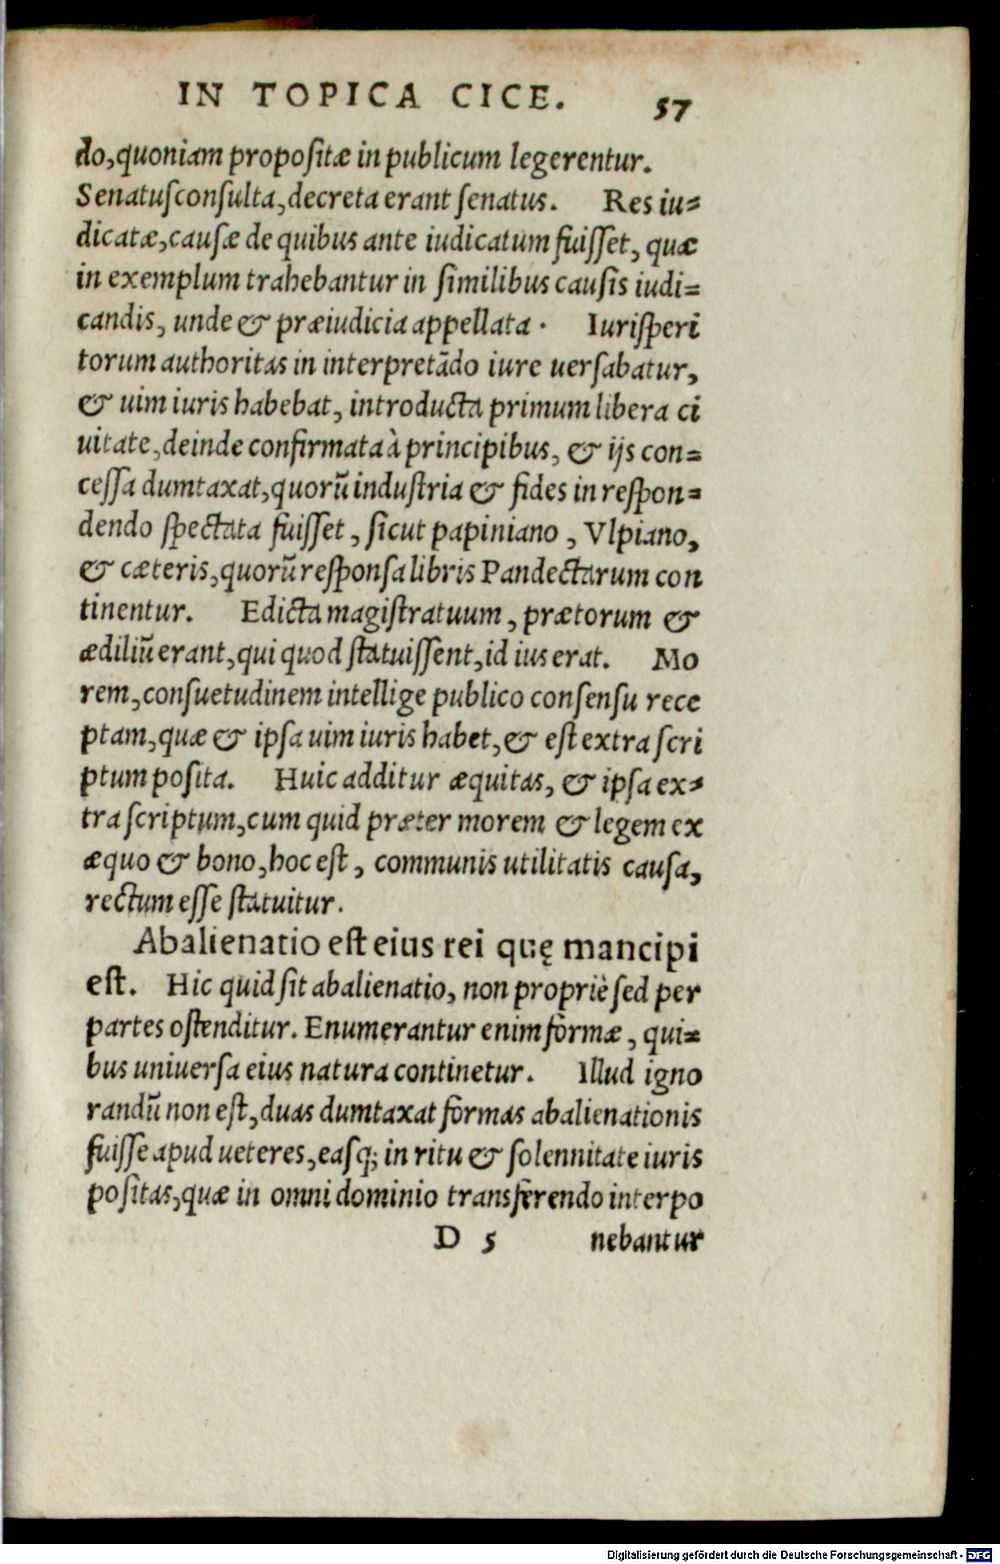 IN TOPICA CICE. 57
do,quoniam propositæ in publicum legerentur.
Senatusconsulta,decreta erant senatus. Res iu-
dicatæ,causæ de quibus ante iudicatum fuisset, quæ
in exemplum trahebantur in similibus causis iudi-
candis, unde & præiudicia appellata. Iurisperi
torum authoritas in interpretãdo iure uersabatur,
& uim iuris habebat, introducta primum libera ci
uitate,deinde confirmata à principibus, & ijs con-
cessa dumtaxat,quorũ industria & fides in respon-
dendo spectata fuisset, sicut papiniano, Vlpiano,
& cæteris,quorũ responsa libris Pandectarum con
tinentur. Edicta magistratuum, prætorum &
ædiliũ erant,qui quod statuissent,id ius erat. Mo
rem,consuetudinem intellige publico consensu rece
ptam,quæ & ipsa uim iuris habet,& est extra scri
ptum posita. Huic additur æquitas, & ipsa ex-
tra scriptum,cum quid præter morem & legem ex
æquo & bono,hoc est, communis utilitatis causa,
rectum esse statuitur.
Abalienatio est eius rei quę mancipi
est. Hic quid sit abalienatio, non propriè sed per
partes ostenditur. Enumerantur enim formæ, qui-
bus uniuersa eius natura continetur. Illud igno
randũ non est,duas dumtaxat formas abalienationis
fuisse apud ueteres,easq; in ritu & solennitate iuris
positas,quæ in omni dominio transferendo interpo
D 5 nebantur
Digitalisierung gefördert durch die Deutsche Forschungsgemeinschaft - DFG